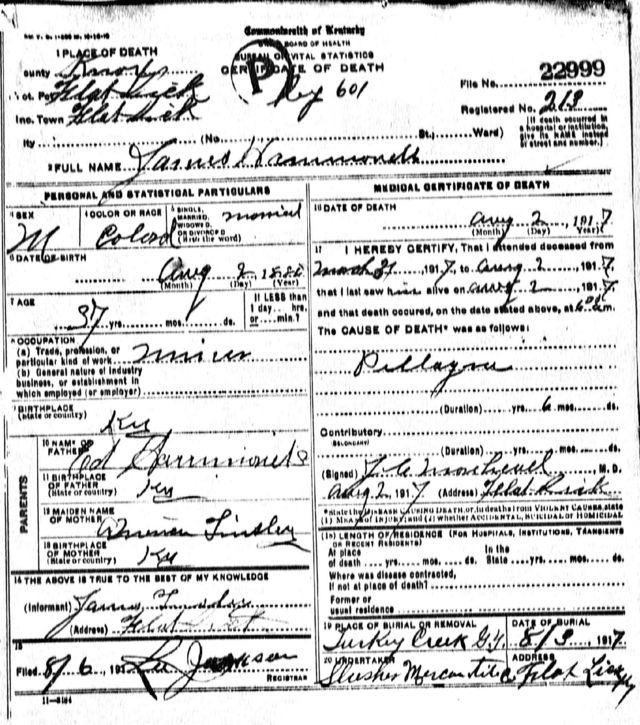 Commonwealth of Kentucky
BOARD OF HEALTH
BUREAU OF VITAL STATISTICS
CERTIFICATE OF DEATH
1 PLACE OF DEATH
County Knox
Vot. Pct Flat Lick
Inc. Town Flat Lick
ity (No. St.; Ward)
File No. 22999
Registered No. 213
[If death occurred in a hospital or institution, give its NAME instead of street and number.]
P
Ky 601
2 FULL NAME James Hammonds
PERSONAL AND STATISTICAL PARTICULARS
3 SEX
M
4 COLOR OR RACE
Colord
5 SINGLE, MARRIED, WIDOWED, OR DIVORCED (Write the word)
6 DATE OF BIRTH
Aug 2
(Month) (Day) (Year)
7 AGE
37 yrs. mos. ds.
If LESS than
1 day.... hrs.
or.... min.?
8 OCCUPATION
(a) Trade, profession, or
particular kind of work miner
(b) General nature of industry
business, or establishment in
which employed (or employer)
9 BIRTHPLACE
(State or country)
Ky
PARENTS
10 NAME OF FATHER
Ed Hammonds
11 BIRTHPLACE OF FATHER
(State or country) Ky
12 MAIDEN NAME OF MOTHER
Tinsley
13 BIRTHPLACE OF MOTHER
(State or country) Ky
14 THE ABOVE IS TRUE TO THE BEST OF MY KNOWLEDGE
(Informant) James
(Address) Flat Lick
15
Filed 8/6 191 Jackson
REGISTRAR
11-3184
MEDICAL CERTIFICATE OF DEATH
16 DATE OF DEATH
Aug 2, 1917
(Month) (Day) (Year)
17 I HEREBY CERTIFY, That I attended deceased from
March 1917, to Aug 2, 1917,
that I last saw him alive on Aug 2, 1917,
and that death occured, on the date stated above, at 6 m.
The CAUSE OF DEATH* was as follows:
Pellagra
(Duration) yrs. 6 mos. ds.
Contributory
(Duration) yrs. mos. ds.
(Signed) M. D.
Aug 2 1917 (Address) Flat Lick
*State the DISEASE CAUSING DEATH, or, in deaths from VIOLENT CAUSES, state
(1) MEANS OF INJURY; and (2) whether ACCIDENTAL, SUICIDAL OR HOMICIDAL
18 LENGTH OF RESIDENCE (FOR HOSPITALS, INSTITUTIONS, TRANSIENTS OR RECENT RESIDENTS)
At place
of death yrs. mos. ds.
In the
State yrs. mos. ds.
Where was disease contracted,
if not at place of death?
Former or
usual residence
19 PLACE OF BURIAL OR REMOVAL
Turkey Creek
DATE OF BURIAL
8/3 1917
20 UNDERTAKER
Slusher Mercantile
ADDRESS
Flat Lick Ky